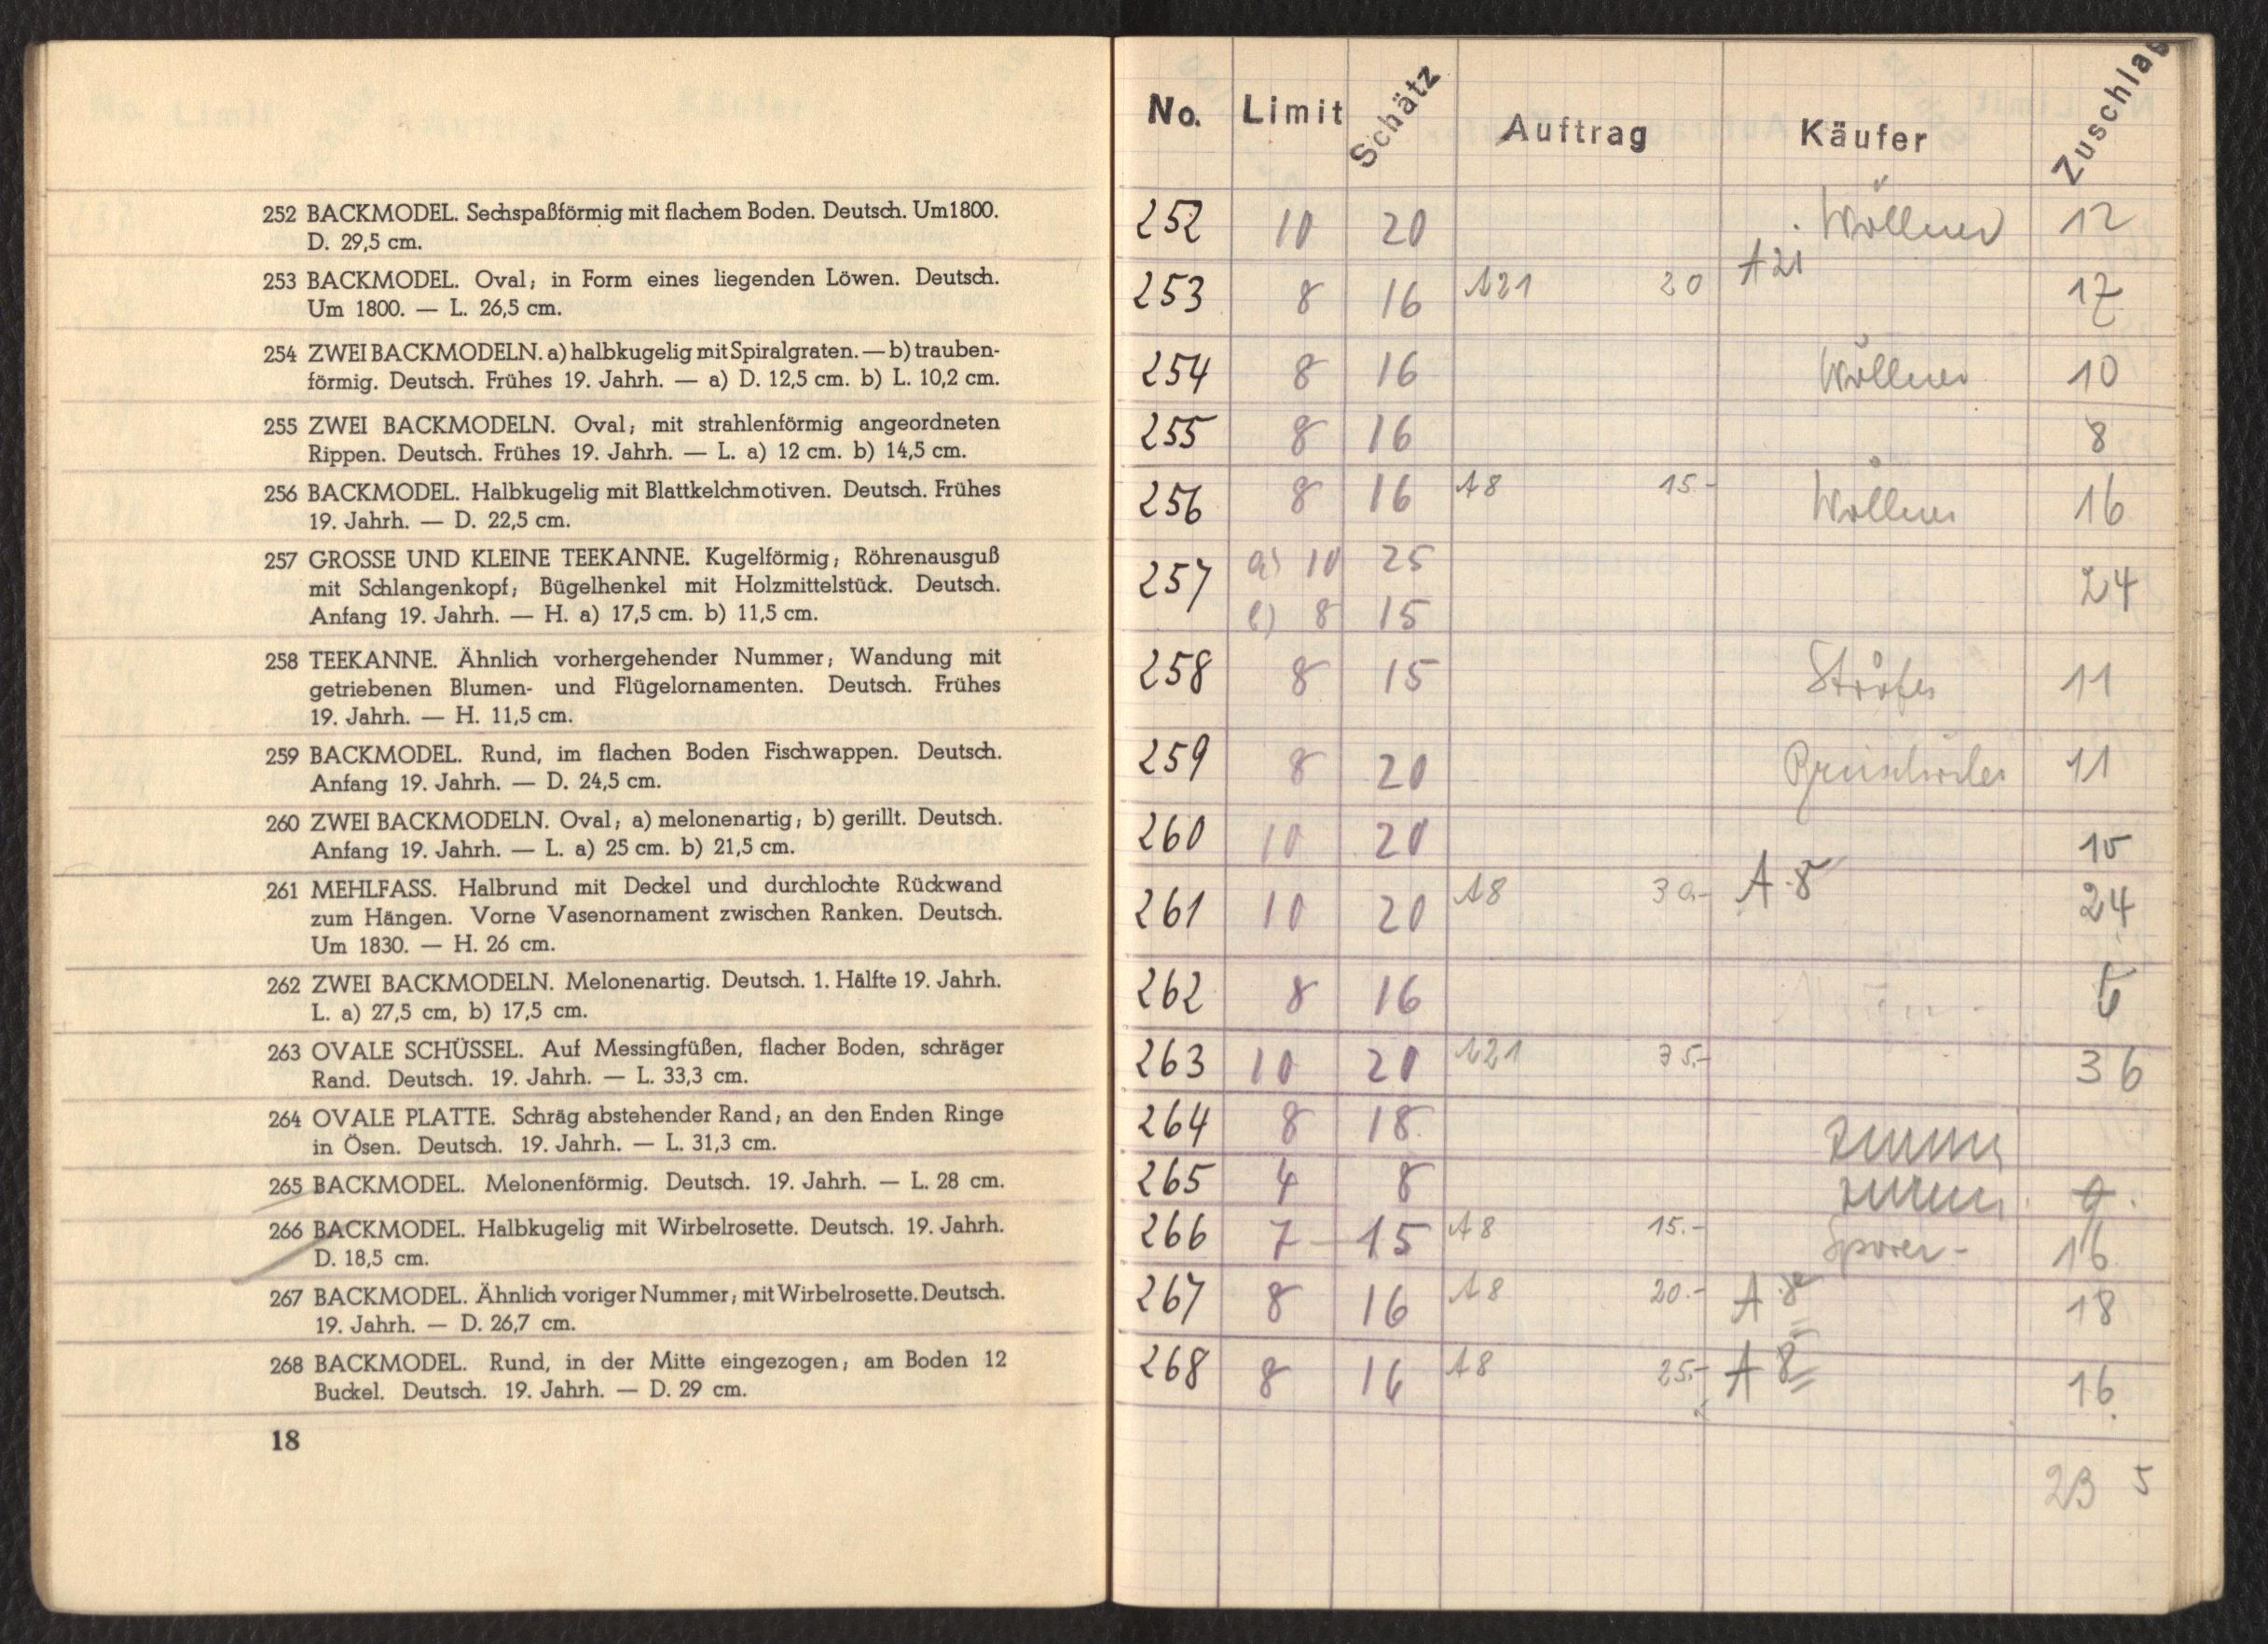 252 BACKMODEL. Sechspaßförmig mit flachem Boden. Deutsch. Um 1800.
D. 29,5 cm.
253 BACKMODEL. Oval; in Form eines liegenden Löwen. Deutsch.
Um 1800. — L. 26,5 cm.
254 ZWEI BACKMODELN. a) halbkugelig mit Spiralgraten. — b) trauben-
förmig. Deutsch. Frühes 19. Jahrh. — a) D. 12,5 cm. b) L. 10,2 cm.
255 ZWEI BACKMODELN. Oval; mit strahlenförmig angeordneten
Rippen. Deutsch. Frühes 19. Jahrh. — L. a) 12 cm. b) 14,5 cm.
256 BACKMODEL. Halbkugelig mit Blattkelchmotiven. Deutsch. Frühes
19. Jahrh. — D. 22,5 cm.
257 GROSSE UND KLEINE TEEKANNE. Kugelförmig; Röhrenausguß
mit Schlangenkopf; Bügelhenkel mit Holzmittelstück. Deutsch.
Anfang 19. Jahrh. — H. a) 17,5 cm. b) 11,5 cm.
258 TEEKANNE. Ähnlich vorhergehender Nummer; Wandung mit
getriebenen Blumen- und Flügelornamenten. Deutsch. Frühes
19. Jahrh. — H. 11,5 cm.
259 BACKMODEL. Rund, im flachen Boden Fischwappen. Deutsch.
Anfang 19. Jahrh. — D. 24,5 cm.
260 ZWEI BACKMODELN. Oval; a) melonenartig; b) gerillt. Deutsch.
Anfang 19. Jahrh. — L. a) 25 cm. b) 21,5 cm.
261 MEHLFASS. Halbrund mit Deckel und durchlochte Rückwand
zum Hängen. Vorne Vasenornament zwischen Ranken. Deutsch.
Um 1830. — H. 26 cm.
262 ZWEI BACKMODELN. Melonenartig. Deutsch. 1. Hälfte 19. Jahrh.
L. a) 27,5 cm, b) 17,5 cm.
263 OVALE SCHÜSSEL. Auf Messingfüßen, flacher Boden, schräger
Rand. Deutsch. 19. Jahrh. — L. 33,3 cm.
264 OVALE PLATTE. Schräg abstehender Rand; an den Enden Ringe
in Ösen. Deutsch. 19. Jahrh. — L. 31,3 cm.
265 BACKMODEL. Melonenförmig. Deutsch. 19. Jahrh. — L. 28 cm.
266 BACKMODEL. Halbkugelig mit Wirbelrosette. Deutsch. 19. Jahrh.
D. 18,5 cm.
267 BACKMODEL. Ähnlich voriger Nummer; mit Wirbelrosette. Deutsch.
19. Jahrh. — D. 26,7 cm.
268 BACKMODEL. Rund, in der Mitte eingezogen; am Boden 12
Buckel. Deutsch. 19. Jahrh. — D. 29 cm.
18
No. Limit Schätz Auftrag Käufer Zuschlag
252 10 20 Wöllner 12
253 8 16 A21 20 A21 17
254 8 16 Wöllner 10
255 8 16 8
256 8 16 A8 15.- Wöllner 16
257 a) 10 25 24
b) 8 15
258 8 15 11
259 8 20 11
260 10 20 15
261 10 20 A8 30.- A 8 24
262 8 16
263 10 20 A21 35.- 36
264 8 18
265 4 8
266 7 15 A8 15.- Sporer- 16
267 8 16 A8 20.- A 8 18
268 8 16 A8 25.- A 8 16
23 5